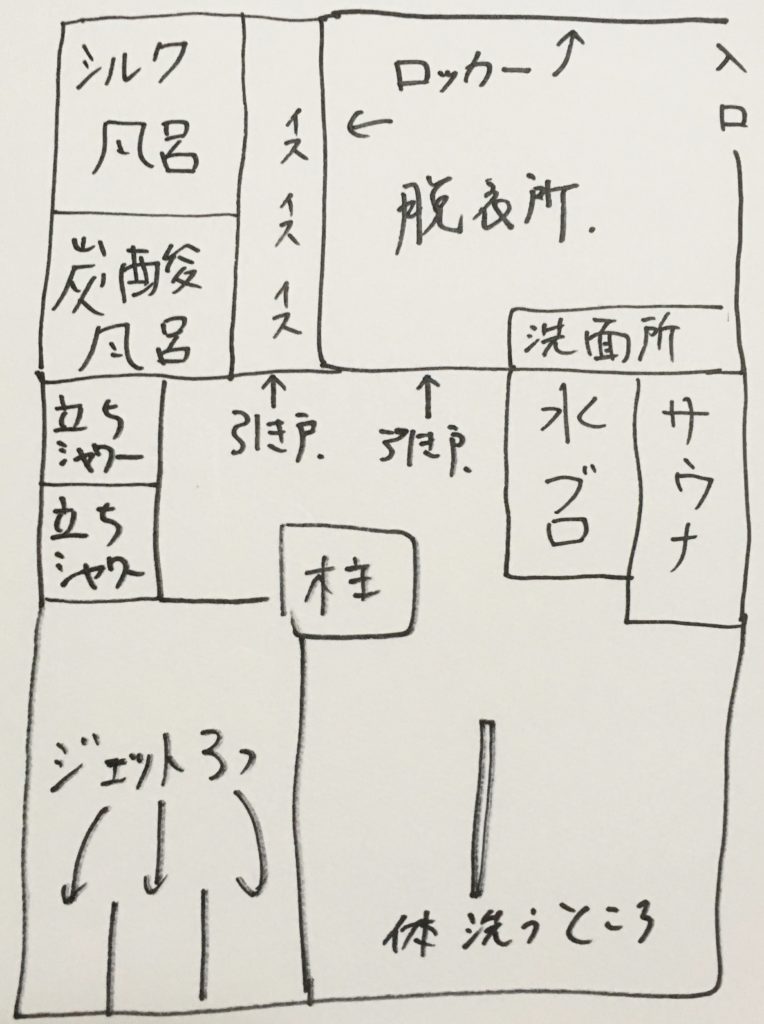 シルク
風呂
炭酸
風呂
イス
イス
イス
ロッカー
入口
脱衣所.
洗面所
立ち
シャワー
立ち
シャワー
引き戸.
引き戸.
水ブロ
サウナ
柱
ジェット3つ
体洗うところ